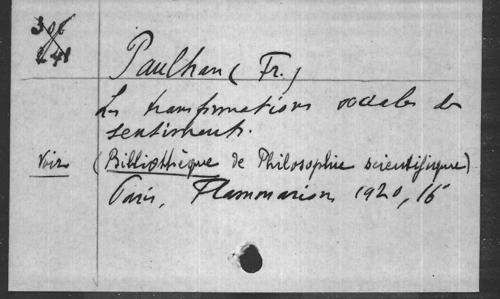 Paulhan (Fr.)
Les transformations sociales des
sentiments.
Voir (Bibliothèque de Philosophie scientifique).
Paris, Flammarion 1920, 16°